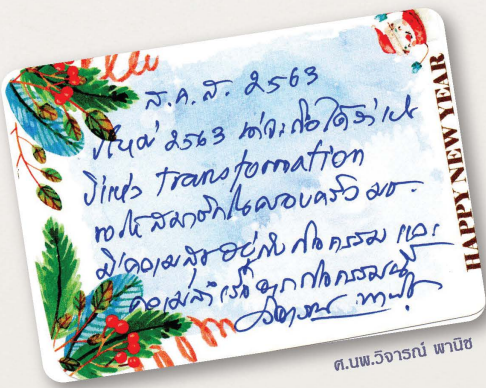 ส.ค.ส. ๒๕๖๓
ปีใหม่ ๒๕๖๓ น่าจะถือได้ว่าเป็น
ปีแห่ง transformation
ขอให้สมาชิกในครอบครัว มช.
มีความสุขอยู่กับกิจกรรม และ
ความสำเร็จจากกิจกรรมนี้
วิจารณ์ พานิช
HAPPY NEW YEAR
ศ.นพ.วิจารณ์ พานิช